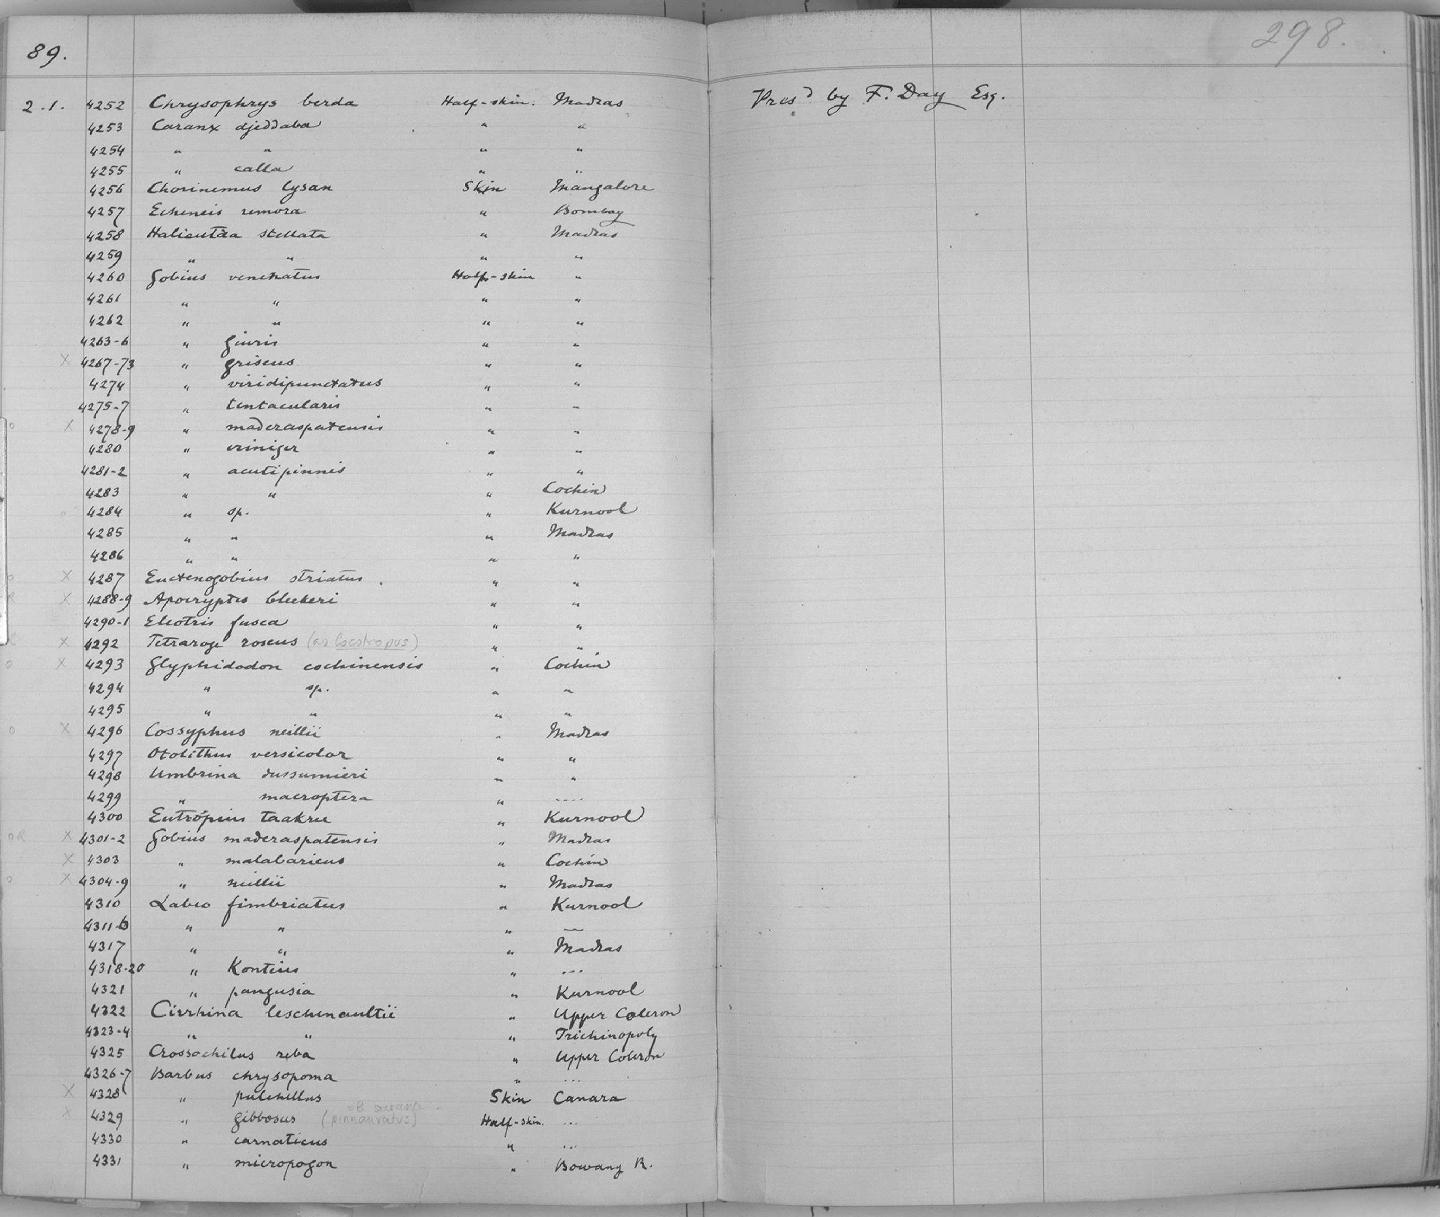 89.
298.
2.1. 4252 Chrysophrys berda Half-skin. Madras Presd by F. Day Esq.
4253 Caranx djeddaba " "
4254 " " " "
4255 " calla " "
4256 Chorinemus lysan Skin Mangalore
4257 Echeneis remora " Bombay
4258 Halieutæa stellata " Madras
4259 " " " "
4260 Gobius venenatus Half-skin "
4261 " " " "
4262 " " " "
4263-6 " giuris " "
X 4267-73 " griseus " "
4274 " viridipunctatus " "
4275-7 " tentacularis " "
o X 4278-9 " maderaspatensis " "
4280 " criniger " "
4281-2 " acutipinnis " "
4283 " " " Cochin
4284 " sp. " Kurnool
4285 " " " Madras
4286 " " " "
o X 4287 Euctenogobius striatus. " "
X 4288-9 Apocryptes bleekeri " "
4290-1 Eleotris fusca " "
X 4292 Tetraroge roseus " "
o X 4293 Glyphidodon cochinensis " Cochin
4294 " sp. " "
4295 " " " "
o X 4296 Cossyphus neillii " Madras
4297 Otolithus versicolor " "
4298 Umbrina dussumieri " "
4299 " macroptera " ....
4300 Eutropius taakree " Kurnool
o R X 4301-2 Gobius maderaspatensis " Madras
X 4303 " malabaricus " Cochin
o X 4304-9 " neillii " Madras
4310 Labeo fimbriatus " Kurnool
4311-6 " " " —
4317 " " " Madras
4318-20 " Kontius " ...
4321 " pangusia " Kurnool
4322 Cirrhina leschenaultii " Upper Coleron
4323-4 " " " Trichinopoly
4325 Crossochilus reba " Upper Coleron
4326-7 Barbus chrysopoma " ...
X 4328 " pulchellus Skin Canara
X 4329 " gibbosus (pinnauratus) Half-skin. ...
4330 " carnaticus " ...
4331 " micropogon " Bowany R.